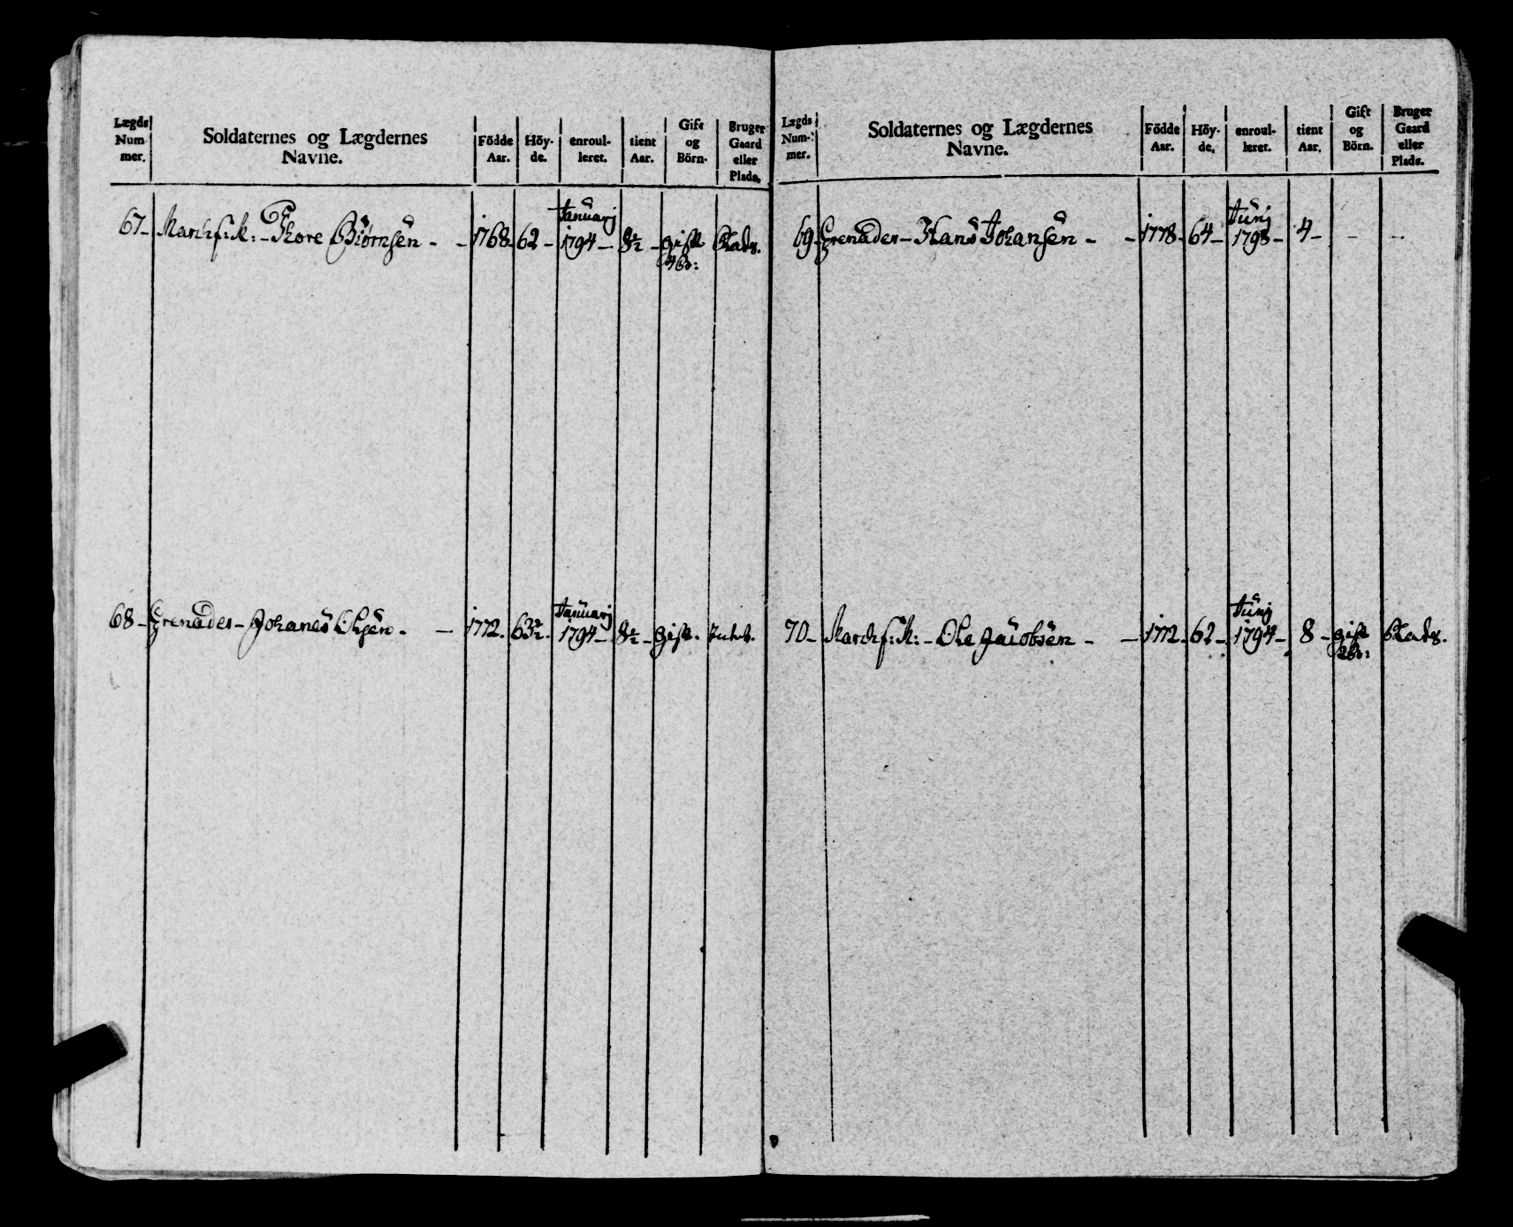 Lægds Num- mer. Soldaternes og Lægdernes Navne. Födde Aar. Höy- de. enroul- leret. tient Aar. Gift og Börn. Bruger Gaard eller Plads.
Januarj
67- March: f: K: - Thore Biörnsen - - 1768- 62- 1794- 8½- gift Plads.
4 b:
Januarj
68- Grenader- Johanes Olsen. - 1772. 63½- 1794- 8½- gift.
Lægds Num- mer. Soldaternes og Lægdernes Navne. Födde Aar. Höy- de. enroul- leret. tient Aar. Gift og Börn. Bruger Gaard eller Plads.
Junj
69- Grenader- Hans Johansen - - 1778- 64- 1798- 4- - -
Junj
70- March: f: K: - Ole Jacobsen - - 1772- 62- 1794- 8- gift Plads.
2 b: